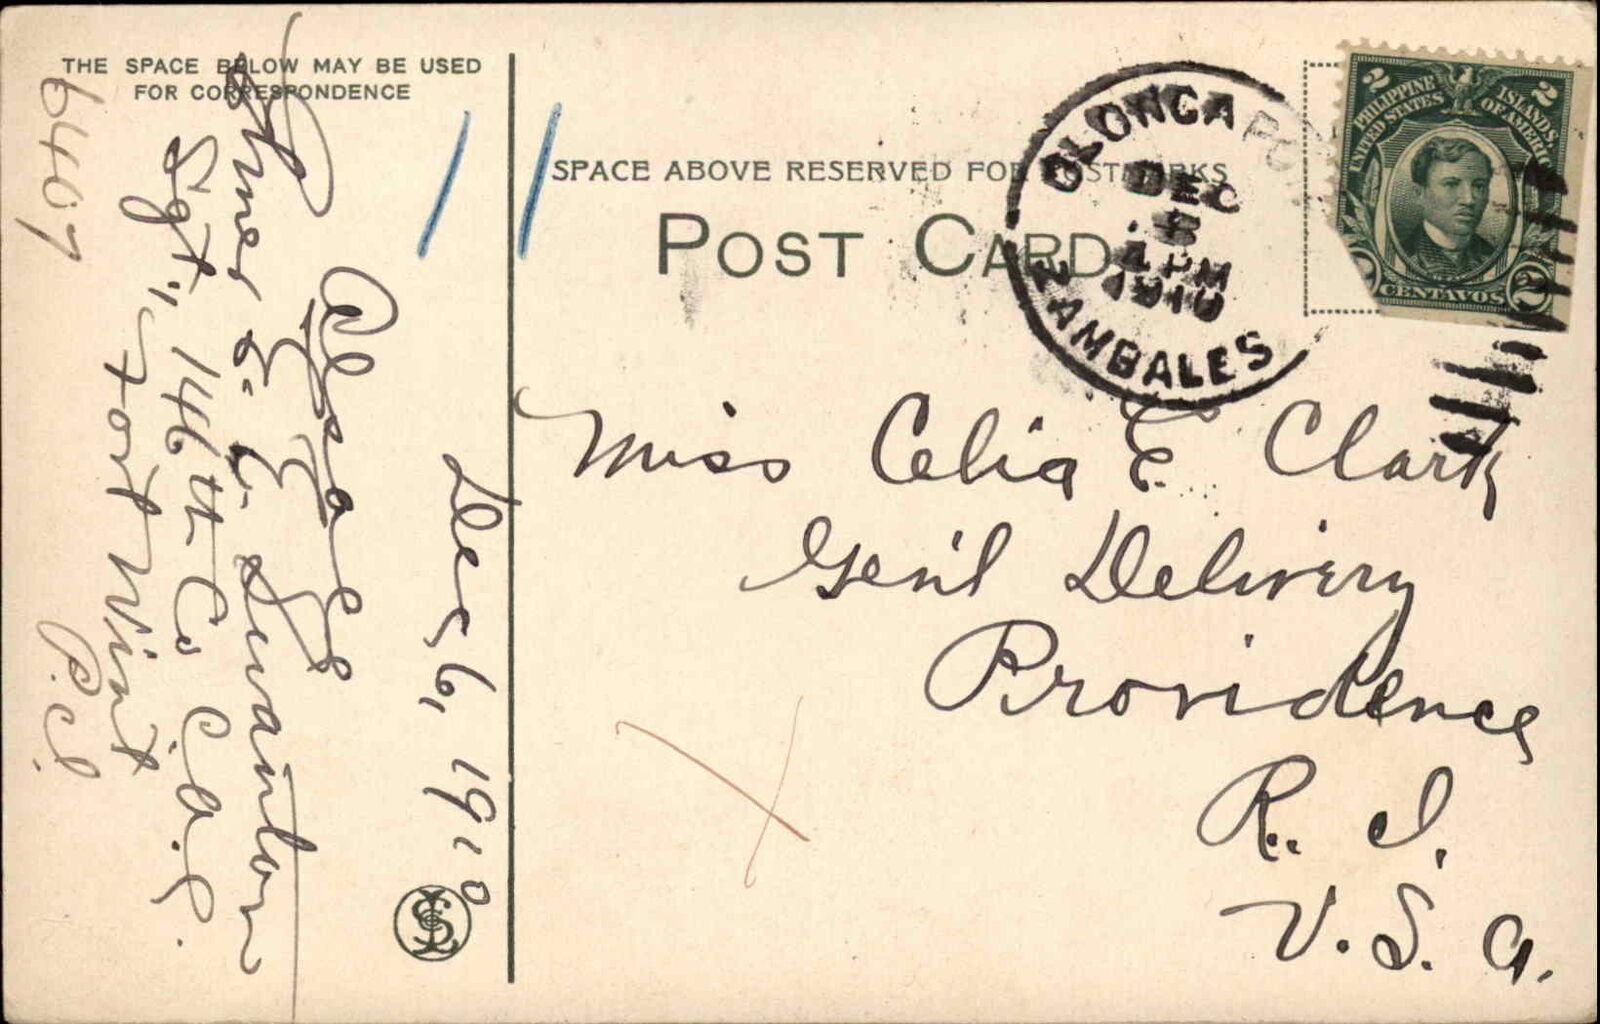 THE SPACE BELOW MAY BE USED
FOR CORRESPONDENCE
SPACE ABOVE RESERVED FOR POSTMARKS
POST CARD
OLONGAPO
DEC
4 PM
1910
ZAMBALES
2 2
PHILIPPINE ISLANDS,
UNITED STATES OF AMERICA
CENTAVOS 2
Miss Celia E. Clark
Gen'l Delivery
Providence
R. I.
U. S. A.
Dec 6, 1910
E. C. Swanton
Sgt, 146th Co C. A. C.
Fort Wint
P. I.
6407